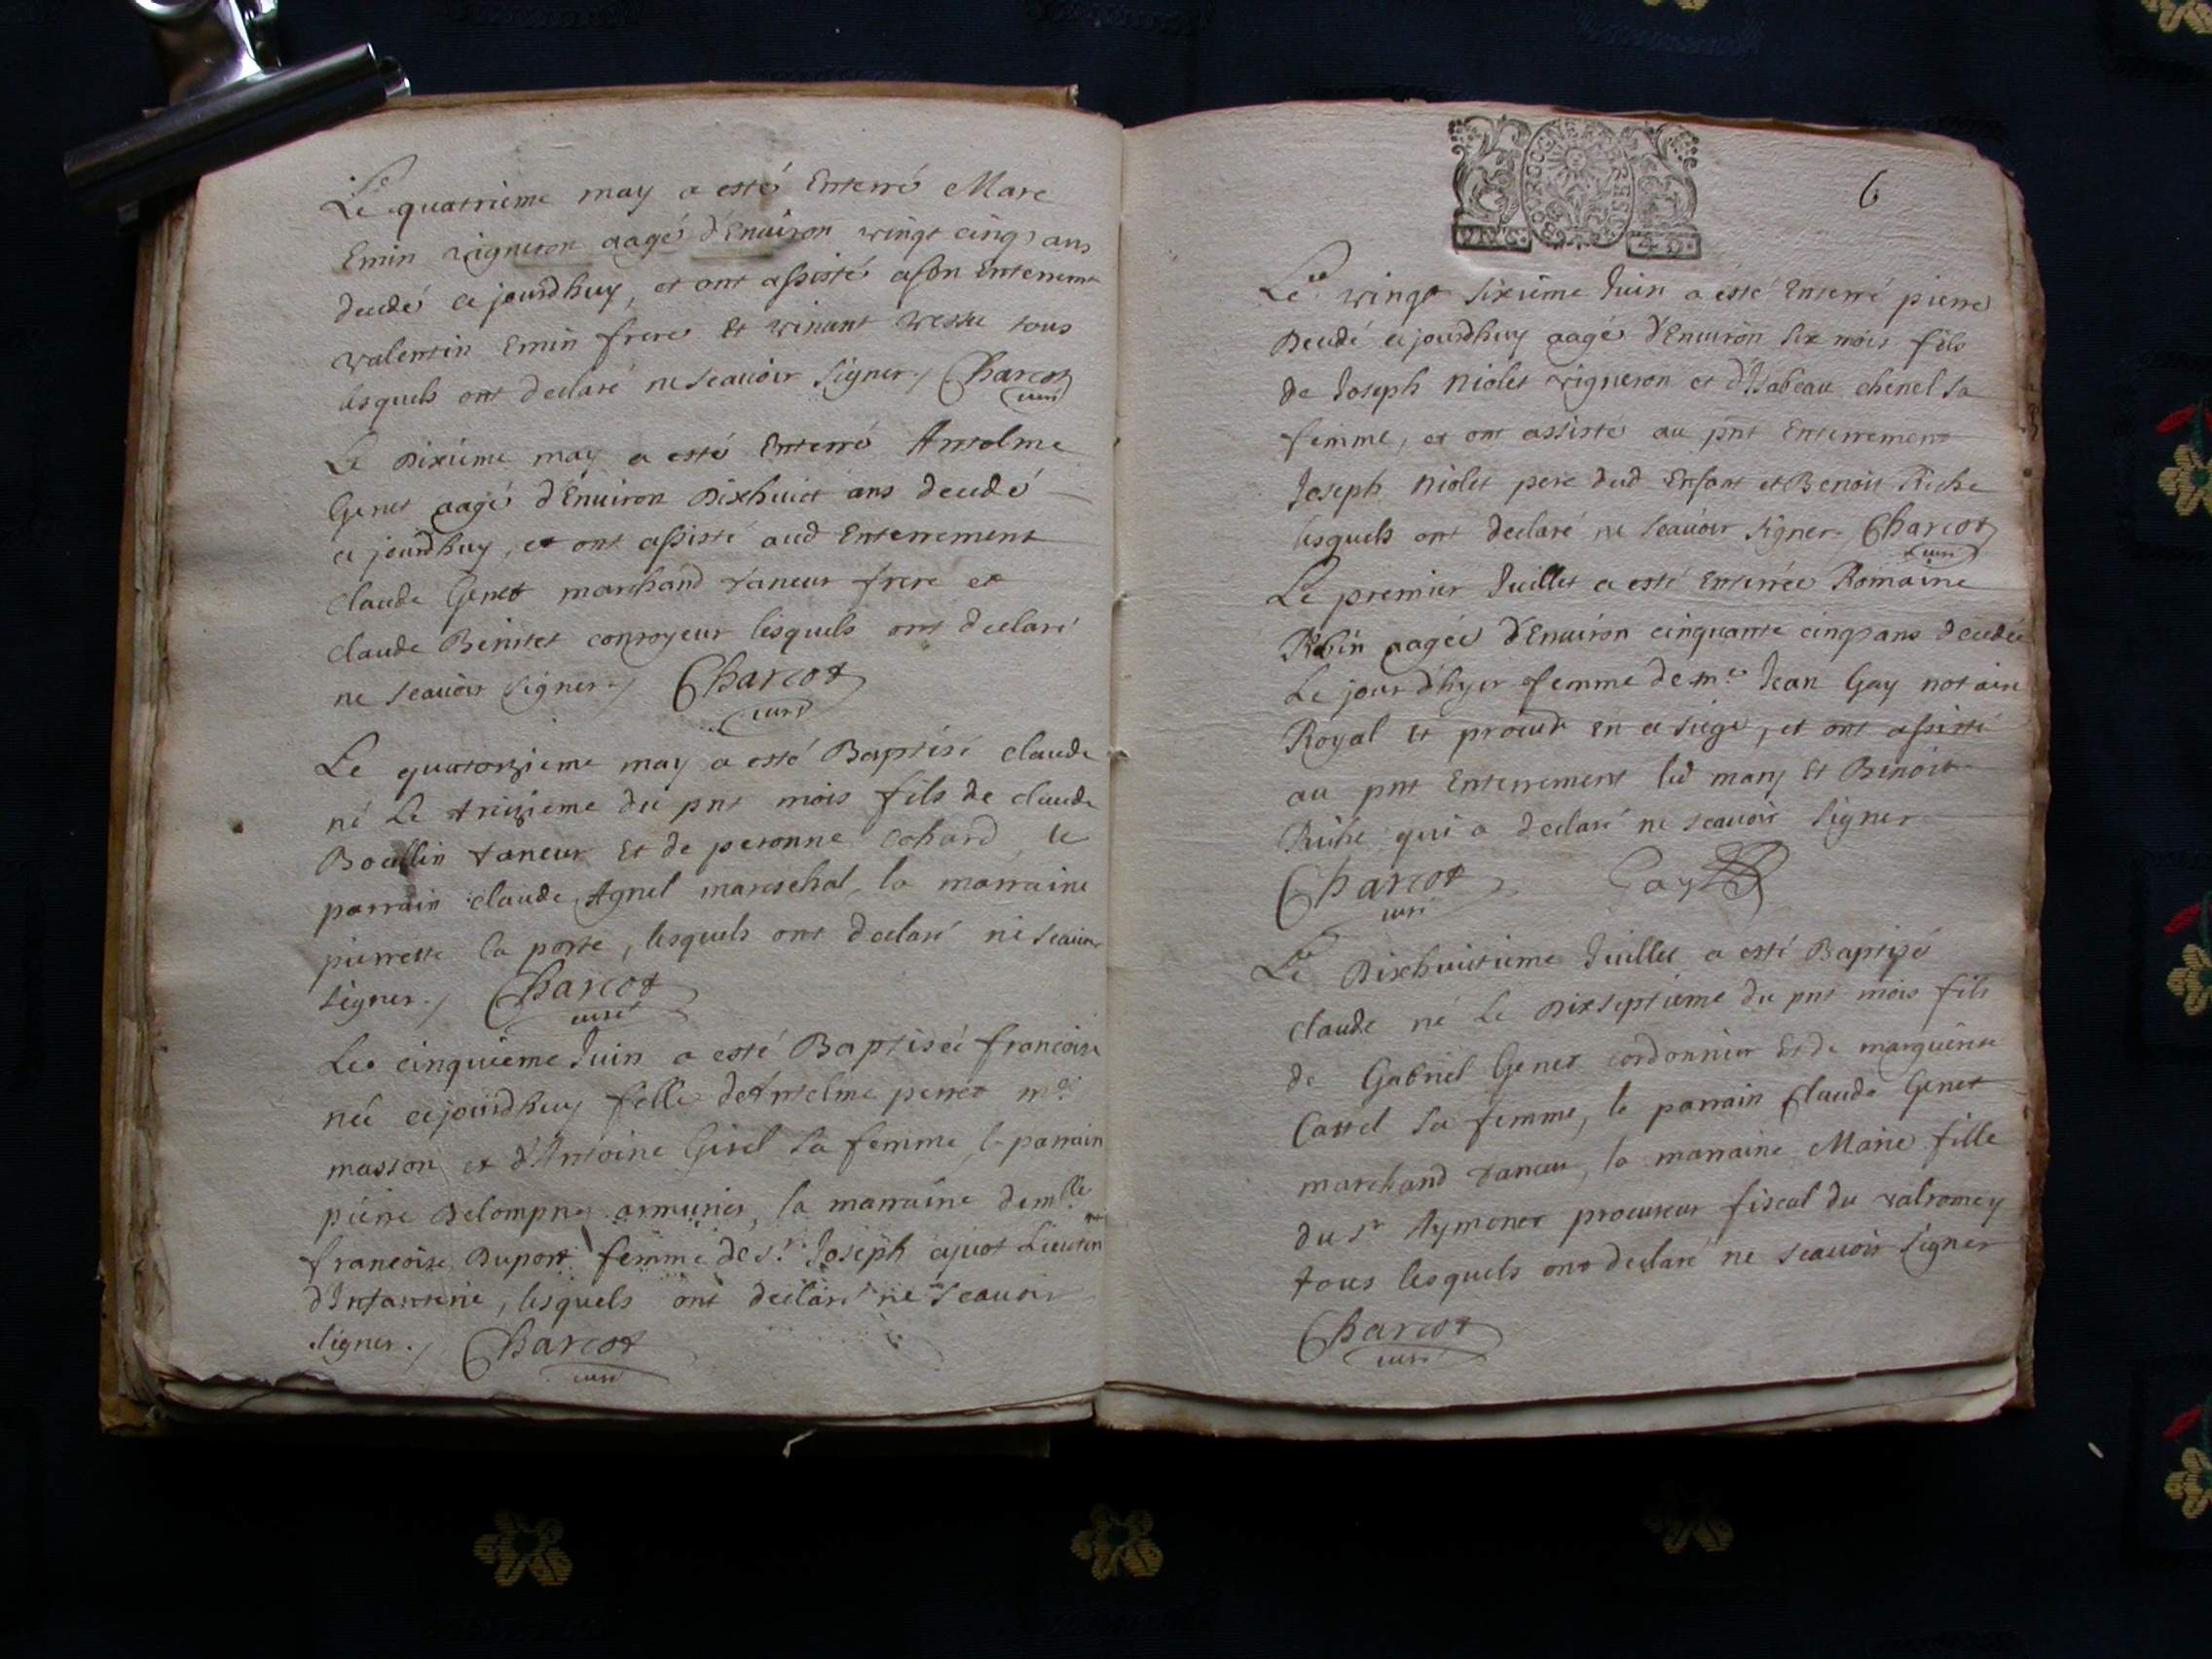 Le quatrieme may a esté Enterré Marc
Emin vigneron aagé d'Enuiron vingt cinq ans
decedé ce jourdhuy, et ont assisté a son Enterremt
valentin Emin frere Et vincent tous
lesquels ont declaré ne scauoir signer./ Charcot
curé
Le Dixième may a esté Enterré Antelme
Genet aagé d'Enuiron Dixhuict ans decedé
ce jourdhuy, et ont assisté aud Enterrement
claude Genet marchand taneur frere et
claude conroyeur lesquels ont declaré
ne scauoir signer./ Charcot
curé
Le quatorzieme may a esté Baptisé claude
né Le treizieme du pnt mois fils de claude
taneur Et de peronne cohard, le
parrain claude Agnel mareschal, la marraine
pierrette la porte, lesquels ont declaré ne scauoir
signer./ Charcot
curé
Le cinquieme Juin a esté Baptisée francoise
née cejourdhuy fille de Antelme perret me
masson et d'Antoine sa femme, le parrain
pierre armurier, la marraine demlle
francoise Dupont femme de Sr Joseph Lieuten
d'Infanterie, lesquels ont declaré ne scauoir
signer./ Charcot
curé
BOURGOGNE BRESSE
6
Le vingt sixième Juin a esté Enterré pierre
Decedé cejourdhuy aagé d'Enuiron six mois fils
de Joseph niolet vigneron et d'Isabeau chenel sa
femme, et ont assisté au pnt Enterrement
Joseph niolet pere dud Enfant et Benoit Riche
lesquels ont declaré ne scauoir signer./ Charcot
curé
Le premier Juillet a esté Enterrée Romaine
Robin aagée d'Enuiron cinquante cinq ans decedée
Le jour d'hyer femme de me Jean Gay notaire
Royal et procur en ce siege, et ont assisté
au pnt Enterrement led mary Et Benoit
Riche qui a declaré ne scauoir signer
Charcot Gay
curé
Le Dixhuictième Juillet a esté Baptisé
claude né Le Dixseptieme du pnt mois fils
de Gabriel Genet cordonnier Et de marguerite
Cattel sa femme, le parrain Claude Genet
marchand taneur, la marraine Marie fille
du Sr Aymonet procureur fiscal du valromey
tous lesquels ont declaré ne scauoir signer
Charcot
curé